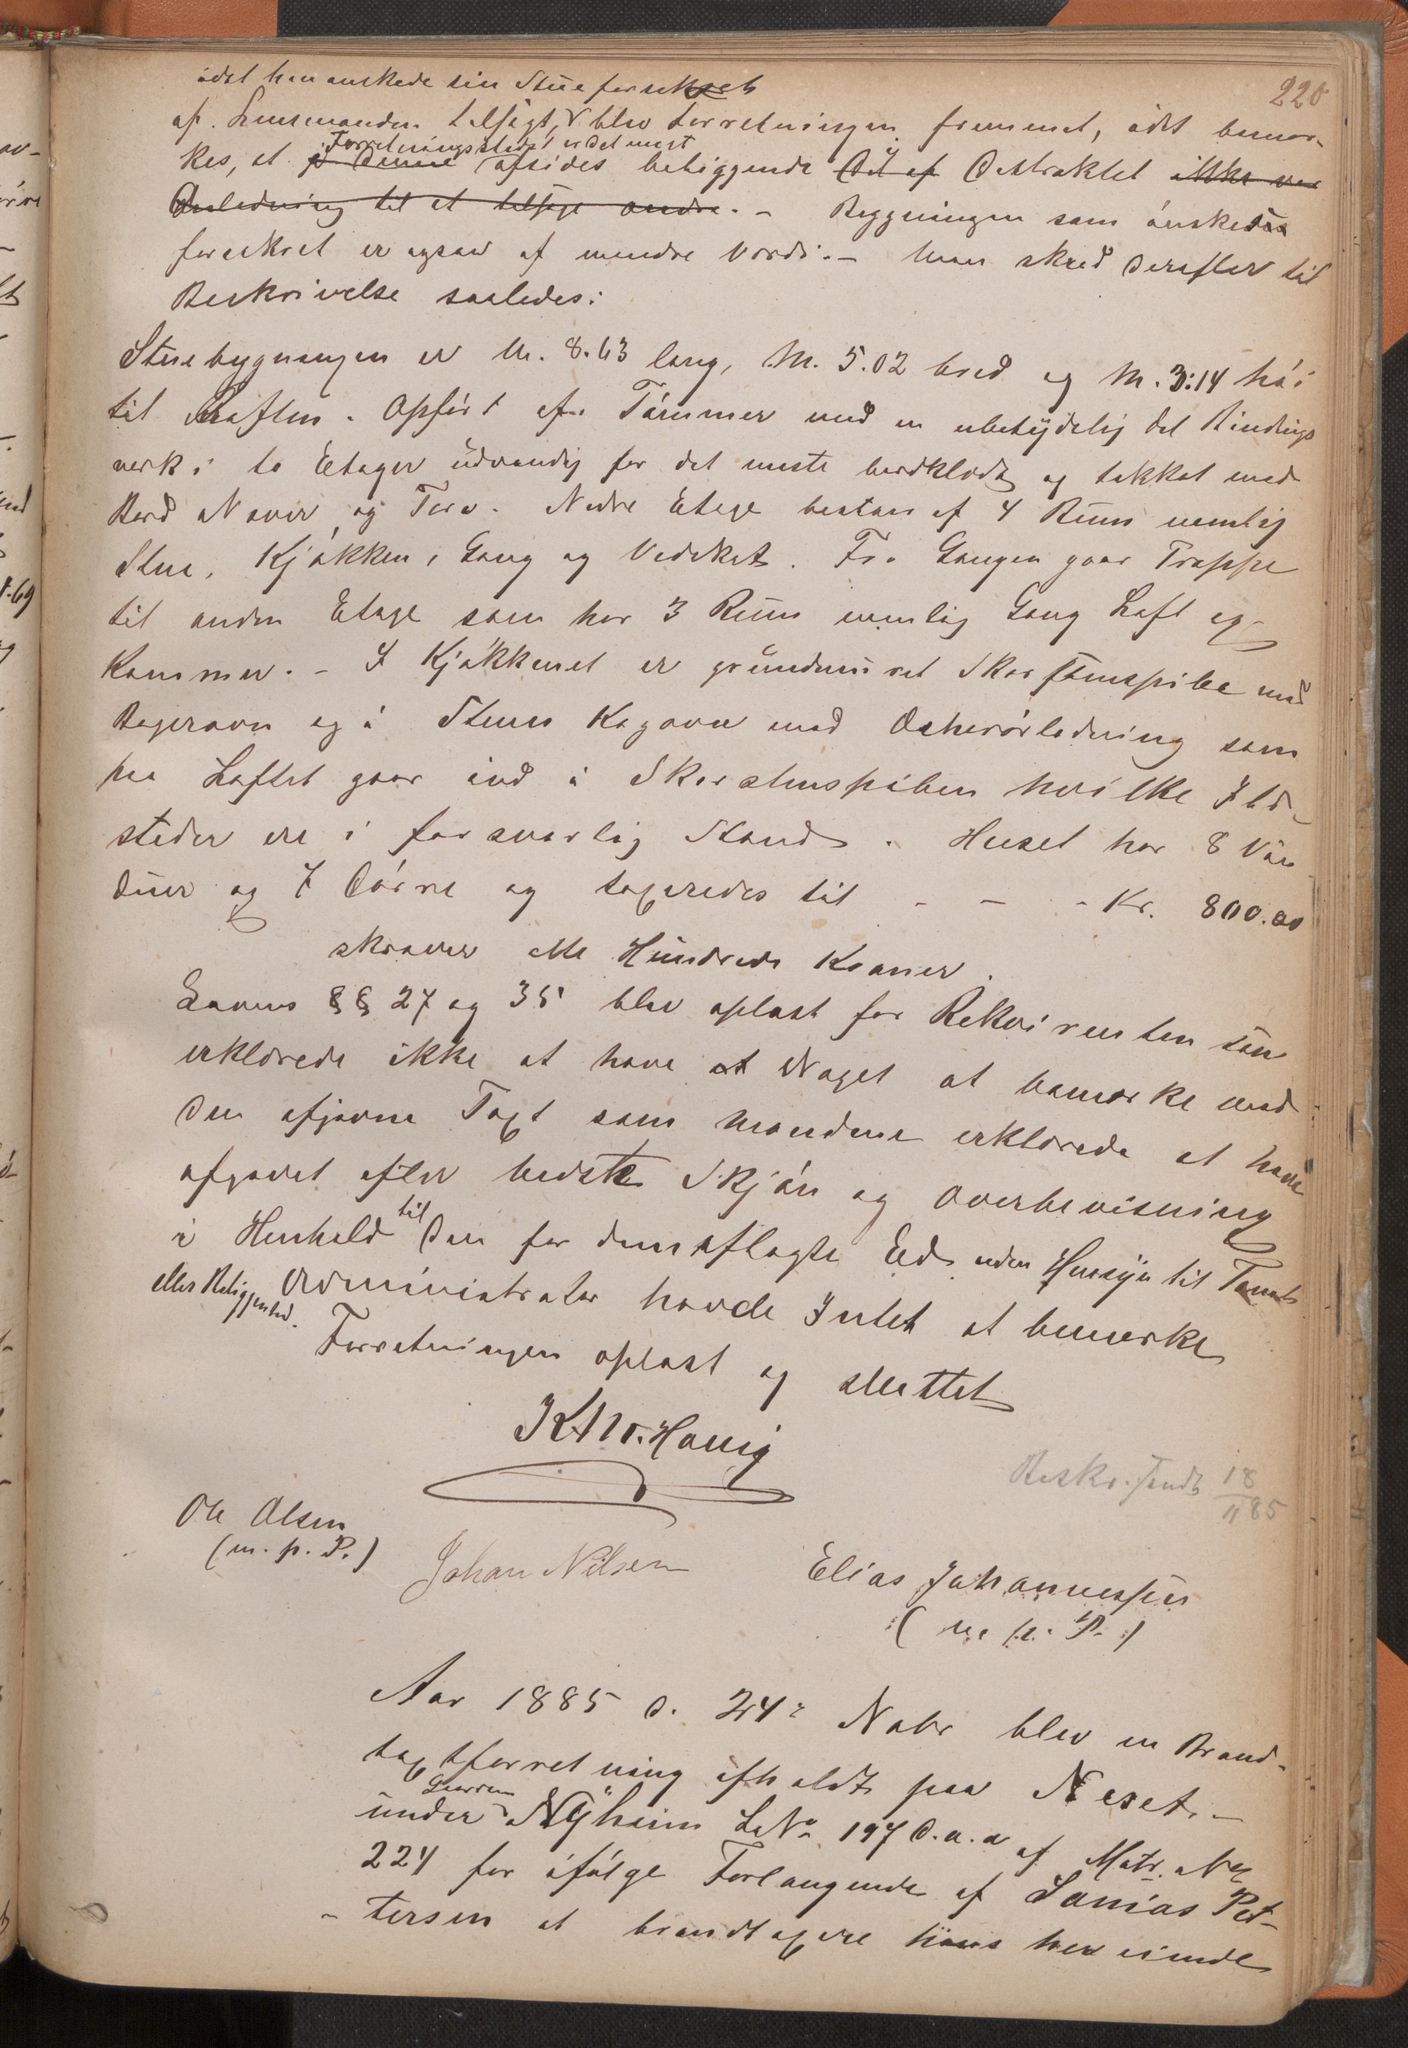 220
idet han ønskede sin Stue forsikret
af Lensmanden tilsigt, blev Forretningen fremmet, idet bemær-
kes, at Forretningsstedet er det mest
afsides beliggende Del af Distriktet ikke var
Anledning til at tilsige andre. - Bygningen som ønskedes
forsikret er ogsaa af mindre Værdi. - Man skred derefter til
Beskrivelse saaledes:
Stuebygningen er M. 8.63 lang, M. 5.02 bred og M. 3:14 høi
til Raften. Opført af Tømmer med en ubetydelig del Bindings
verk i to Etager udvendig for det meste bordklædt og tækket med
Bord Næver og Torv. Nedre Etage bestaar af 4 Rum nemlig
Stue, Kjøkken, Gang og Vedsket. Fra Gangen gaar Trappe
til anden Etage som har 3 Rum nemlig Gang Loft og
Kammer. - I Kjøkkenet er grundmuret Skorstenspibe med
Bagerovn og i Stuen Kogovn med Rørledning som
paa Loftet gaar ind i Skorstenspiben hvilke Ild-
steder ere i forsvarlig Stand. Huset har 8 Vin
duer og 7 Dørre og taxeredes til - - - Kr. 800.00
skriver otte Hundrede Kroner.
Lovens §§ 27 og 35 blev oplæst for Rekvirenten som
erklærede ikke at have Noget at bemærke med
den afgivne Taxt som Mændene erklærede at have
afgivet efter bedste Skjøn og Overbevisning
i Henhold til den for dem aflagte Ed uden Hensyn til Tomt
eller Beliggenhed. Administrator havde Intet at bemærke
Forretningen oplæst og sluttet
Havig
Beskr. sendt 18/11 85
Ole Olsen
(m. p. P.)
Johan Nilsen
Elias Johannessen
(m. p. P.)
Aar 1885 d. 24de Nobr blev en Brand-
taxtforretning afholdt paa Neset -
under Gaarden Nyheim L. No 197 d.a.a af Matr. No
224 for ifølge Forlangende af Tersen Pet-
- tersen at brandtaxere hans her eiende